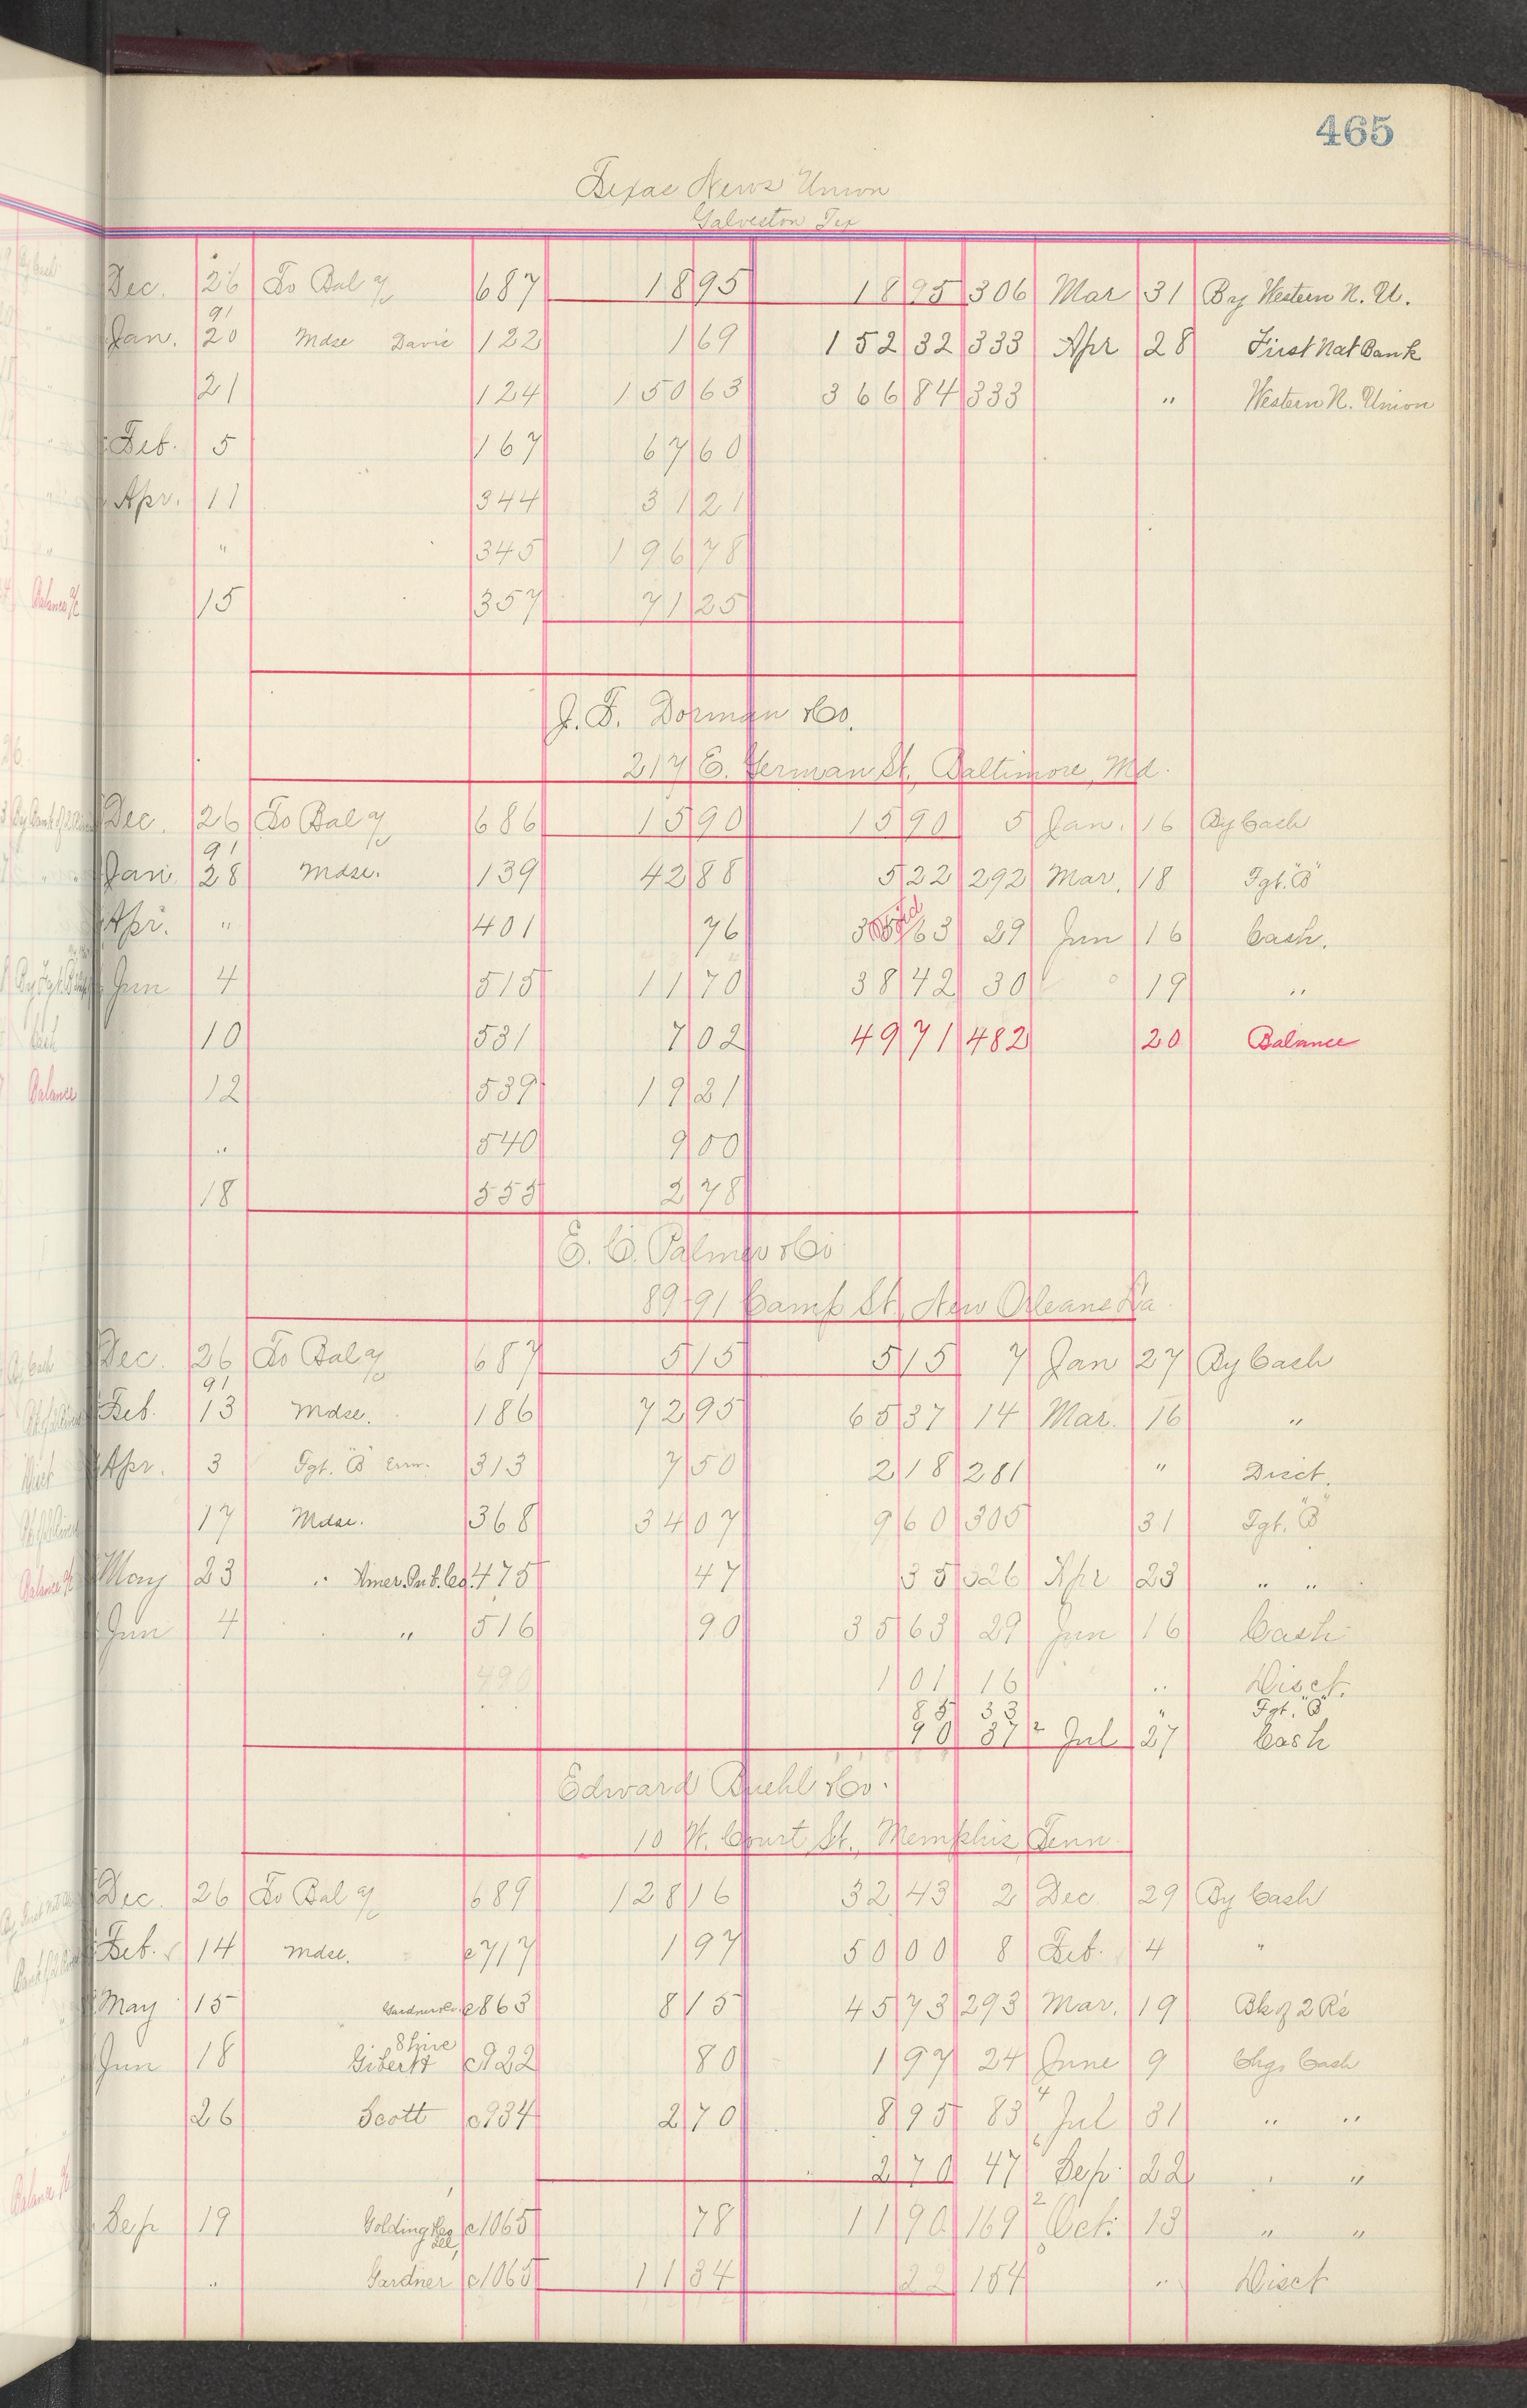 465
Texas News Union
Galveston Tex
Dec. 26 To Bal a/c 687 18 95 18 95 306 Mar 31 By Western N. U.
91
Jan. 20 Mdse Davis 122 1 69 152 32 333 Apr 28 First Nat Bank
21 124 150 63 366 84 333 " Western N. Union
Feb. 5 167 67 60
Apr. 11 344 31 21
" 345 196 78
15 357 71 25
J. F. Dorman & Co.
217 E. German St., Baltimore, Md.
Dec. 26 To Bal a/c 686 15 90 15 90 5 Jan. 16 By Cash
91
Jan 28 Mdse. 139 42 88 5 22 292 Mar. 18 Fgt. "B"
Apr. " 401 76 63 29 Jun 16 Cash.
Jun 4 515 11 70 38 42 30 19 "
10 531 7 02 49 71 482 20 Balance
12 539 19 21
" 540 9 00
18 555 2 78
E. C. Palmer & Co
89-91 Camp St., New Orleans La.
Dec. 26 To Bal a/c 687 5 15 5 15 7 Jan 27 By Cash
91
Feb. 13 Mdse. 186 72 95 65 37 14 Mar. 16 "
Apr. 3 Fgt. "B" Error. 313 7 50 2 18 281 " Disct.
17 Mdse. 368 34 07 9 60 305 31 Fgt. "B"
May 23 " Amer. Pub. Co. 475 47 35 326 Apr 23 " "
Jun 4 " 516 90 35 63 29 Jun 16 Cash
490 1 01 16 " Disct.
85 33 " Fgt. "B"
90 37 2 Jul 27 Cash
Edward Buehl & Co.
10 W. Court St., Memphis Tenn.
Dec. 26 To Bal a/c 689 128 16 32 43 2 Dec. 29 By Cash
Feb. 14 Mdse. c717 1 97 50 00 8 Feb. 4 "
May 15 Gardner Co. c863 8 15 45 73 293 Mar. 19 Bk of 2 R's
Shive
Jun 18 Gibert & c922 80 1 97 24 June 9 Chgs Cash
26 Scott c934 2 70 8 95 83 4 Jul 31 " "
2 70 47 6 Sep. 22 " "
Sep 19 Golding c1065 78 11 90 169 2 Oct. 13 " "
" Gardner c1065 11 34 22 154 " Disct